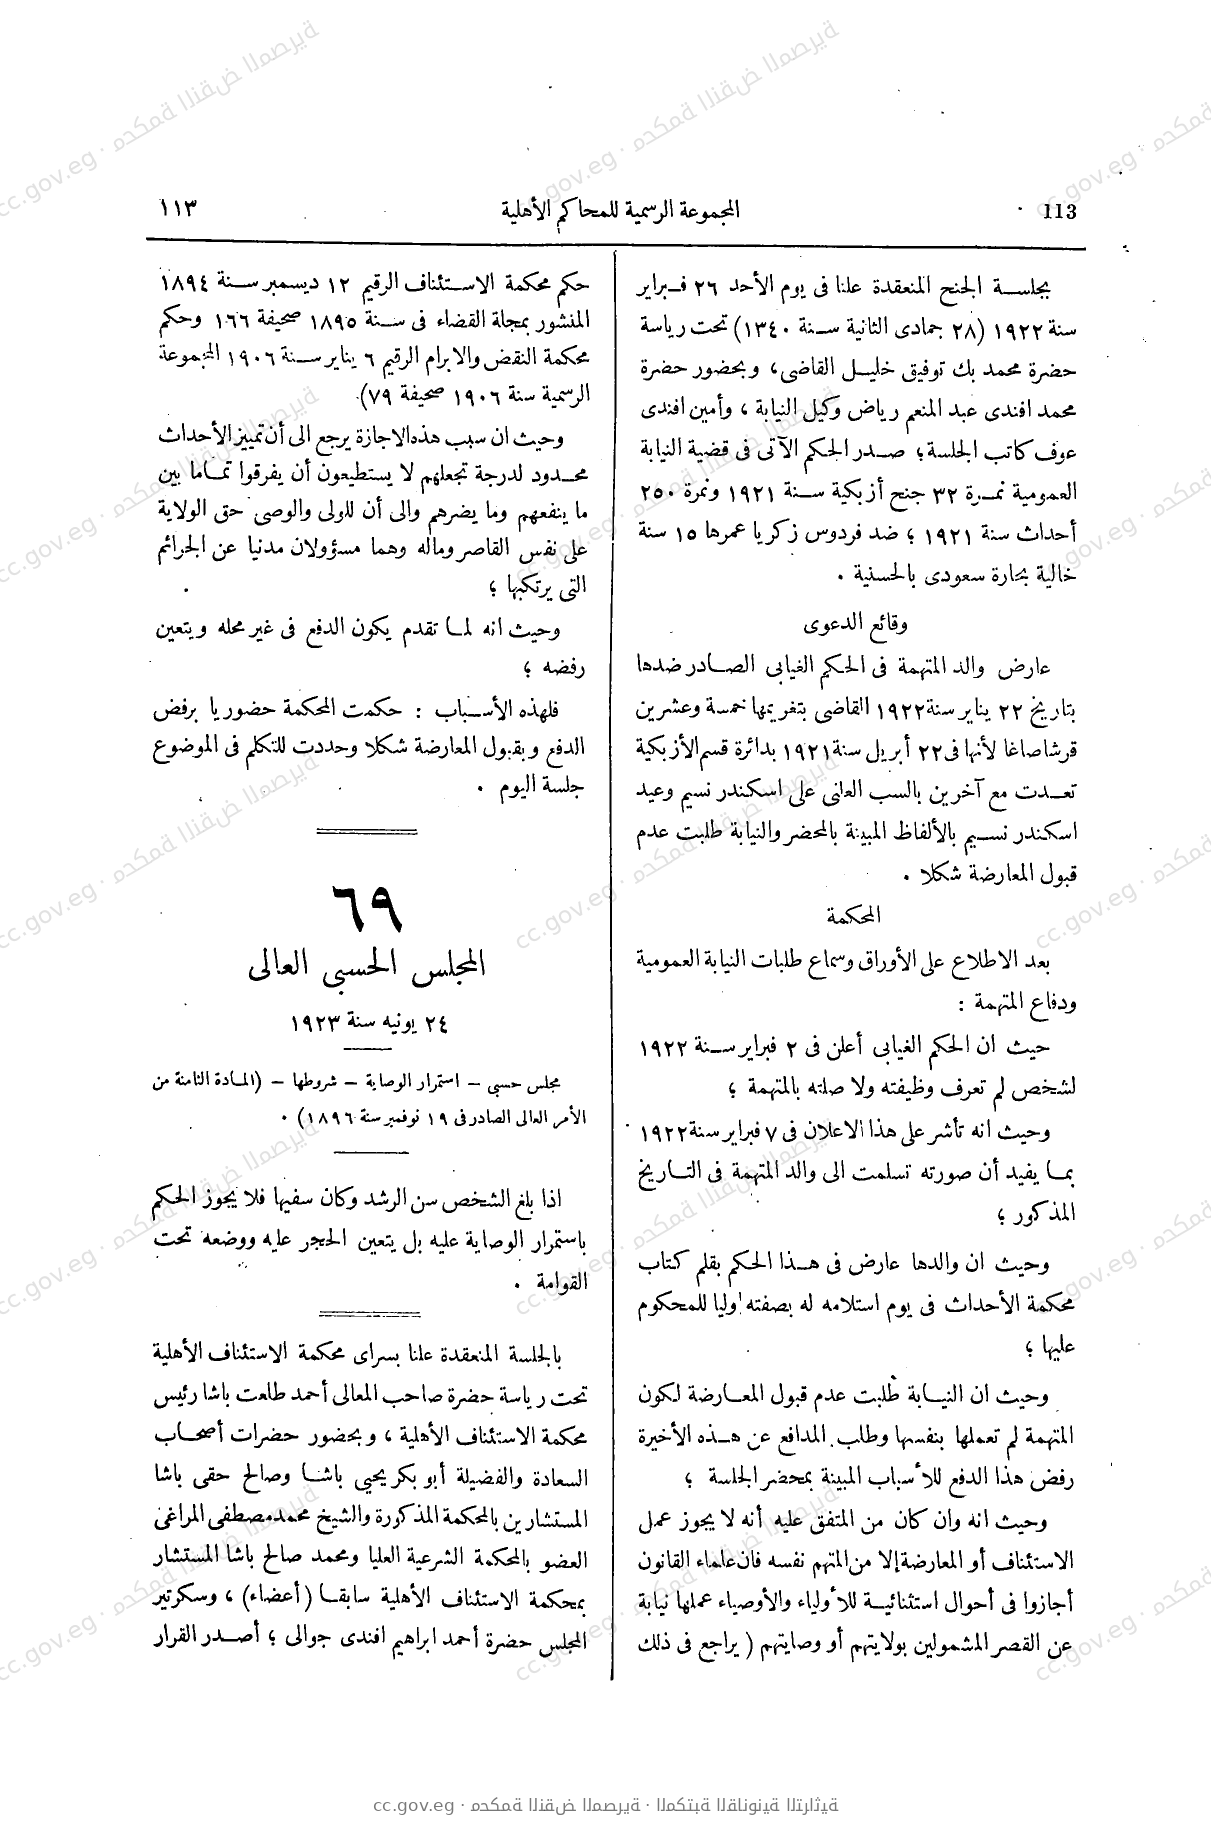 113
المجموعة الرسمية للمحاكم الأهلية
١١٣
بجلسة الجنح المنعقدة علنا فى يوم الأحد ٢٦ فبراير
سنة ١٩٢٢ (٢٨ جمادى الثانية سنة ١٣٤٠) تحت رياسة
حضرة محمد بك توفيق خليل القاضى، وبحضور حضرة
محمد افندى عبد المنعم رياض وكيل النيابة، وأمين افندى
عوف كاتب الجلسة؛ صدر الحكم الآتى فى قضية النيابة
العمومية نمرة ٣٢ جنح أزبكية سنة ١٩٢١ ونمرة ٢٥٠
أحداث سنة ١٩٢١ ؛ ضد فردوس زكريا عمرها ١٥ سنة
خالية بحارة سعودى بالحسنية .
وقائع الدعوى
عارض والد المتهمة فى الحكم الغيابى الصادر ضدها
بتاريخ ٢٢ يناير سنة ١٩٢٢ القاضى بتغريمها خمسة وعشرين
قرشا صاغا لأنها فى ٢٢ أبريل سنة ١٩٢١ بدائرة قسم الأزبكية
تعدت مع آخرين بالسب العلنى على اسكندر نسيم وعيد
اسكندر نسيم بالألفاظ المبينة بالمحضر والنيابة طلبت عدم
قبول المعارضة شكلا .
المحكمة
بعد الاطلاع على الأوراق وسماع طلبات النيابة العمومية
ودفاع المتهمة :
حيث ان الحكم الغيابى أعلن فى ٢ فبراير سنة ١٩٢٢
لشخص لم تعرف وظيفته ولا صلته بالمتهمة ؛
وحيث انه تأشر على هذا الاعلان فى ٧ فبراير سنة ١٩٢٢
بما يفيد أن صورته تسلمت الى والد المتهمة فى التاريخ
المذكور ؛
وحيث ان والدها عارض فى هذا الحكم بقلم كتاب
محكمة الأحداث فى يوم استلامه له بصفته وليا للمحكوم
عليها ؛
وحيث ان النيابة طلبت عدم قبول المعارضة لكون
المتهمة لم تعملها بنفسها وطلب المدافع عن هذه الأخيرة
رفض هذا الدفع للأسباب المبينة بمحضر الجلسة ؛
وحيث انه وان كان من المتفق عليه أنه لا يجوز عمل
الاستئناف أو المعارضة إلا من المتهم نفسه فان علماء القانون
أجازوا فى أحوال استثنائية للأولياء والأوصياء عملها نيابة
عن القصر المشمولين بولايتهم أو وصايتهم (يراجع فى ذلك
حكم محكمة الاستئناف الرقيم ١٢ ديسمبر سنة ١٨٩٤
المنشور بمجلة القضاء فى سنة ١٨٩٥ صحيفة ١٦٦ وحكم
محكمة النقض والابرام الرقيم ٦ يناير سنة ١٩٠٦ المجموعة
الرسمية سنة ١٩٠٦ صحيفة ٧٩).
وحيث ان سبب هذه الاجازة يرجع الى أن تمييز الأحداث
محدود لدرجة تجعلهم لا يستطيعون أن يفرقوا تماما بين
ما ينفعهم وما يضرهم والى أن للولى والوصى حق الولاية
على نفس القاصر وماله وهما مسؤولان مدنيا عن الجرائم
التى يرتكبها ؛
وحيث انه لما تقدم يكون الدفع فى غير محله ويتعين
رفضه ؛
فلهذه الأسباب : حكمت المحكمة حضوريا برفض
الدفع وبقبول المعارضة شكلا وحددت للتكلم فى الموضوع
جلسة اليوم .
٦٩
المجلس الحسبى العالى
٢٤ يونيه سنة ١٩٢٣
مجلس حسبى – استمرار الوصاية – شروطها – (المادة الثامنة من
الأمر العالى الصادر فى ١٩ نوفمبر سنة ١٨٩٦) .
اذا بلغ الشخص سن الرشد وكان سفيها فلا يجوز الحكم
باستمرار الوصاية عليه بل يتعين الحجر عليه ووضعه تحت
القوامة .
بالجلسة المنعقدة علنا بسراى محكمة الاستئناف الأهلية
تحت رياسة حضرة صاحب المعالى أحمد طلعت باشا رئيس
محكمة الاستئناف الأهلية ، وبحضور حضرات أصحاب
السعادة والفضيلة أبو بكر يحيى باشا وصالح حقى باشا
المستشارين بالمحكمة المذكورة والشيخ محمد مصطفى المراغى
العضو بالمحكمة الشرعية العليا ومحمد صالح باشا المستشار
بمحكمة الاستئناف الأهلية سابقا (أعضاء) ، وسكرتير
المجلس حضرة أحمد ابراهيم افندى جوالى ؛ أصدر القرار
cc.gov.eg · محكمة النقض المصرية · المكتبة القانونية التراثية